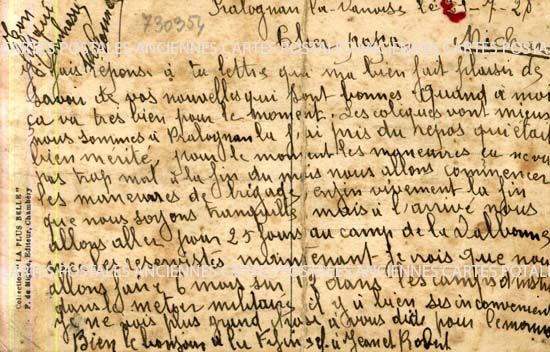 730354
Pralognan la Vanoise le 29-7-28
Cher papa Michel
Je fais réponse à ta lettre qui m'a bien fait plaisir de
savoir de vos nouvelles qui sont bonnes. Quand à moi
ça va très bien pour le moment. Les coliques vont mieux
nous sommes à Pralognan la j'ai pris du repos qui était
bien merité, pour le moment les maneuvres ça ne va
pas trop mal à la fin du mois nous allons commencer
les maneuvres de brigade enfin vivement la fin
que nous soyons tranquille mais à l'arrivé nous
allons aller pour 25 jours au camp de la Valbonne
les reservistes maintenant je vois que nous
allons faire 6 mois sur 12 dans les camps
dans le métier militaire il y a bien ses inconvenients
je ne vois plus grand chose à vous dire pour le moment
Bien le bonjour à à Jean et Robert
Collection "LA PLUS BELLE"
Editeur, Chambéry
CARTES ANTIQUES ANCIENNES CARTES ANCIENNES